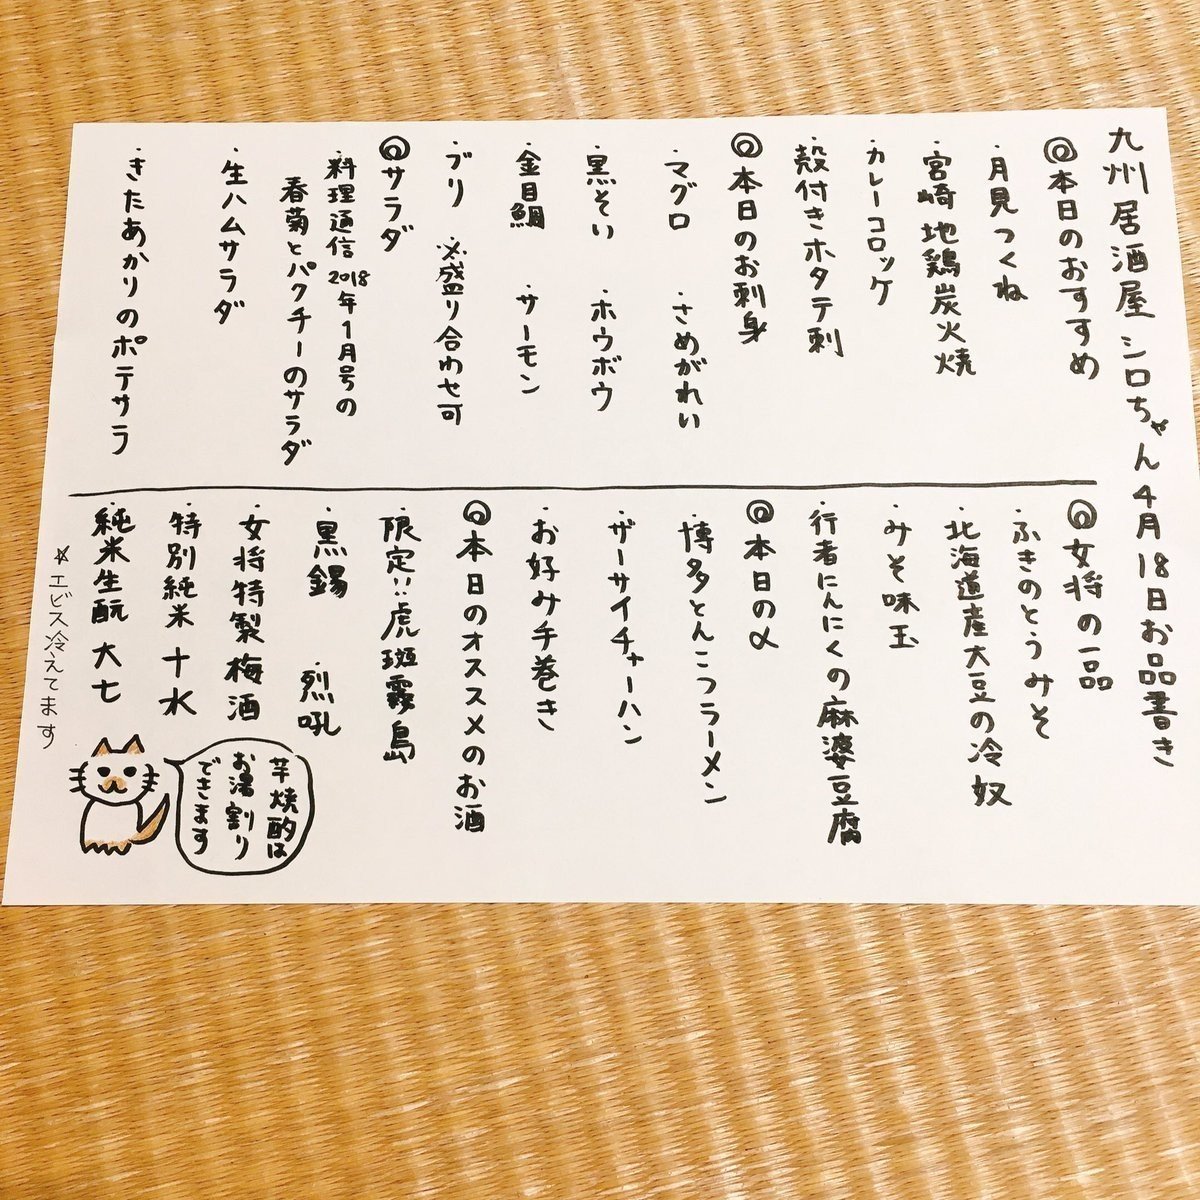 九州居酒屋 シロちゃん 4月18日お品書き
◎本日のおすすめ
・月見つくね
・宮崎地鶏炭火焼
・カレーコロッケ
・殻付きホタテ刺
◎本日のお刺身
・マグロ ・さめがれい
・黒そい ・ホウボウ
・金目鯛 ・サーモン
・ブリ ※盛り合わせ可
◎サラダ
・料理通信2018年1月号の
春菊とパクチーのサラダ
・生ハムサラダ
・きたあかりのポテサラ
◎女将の一品
・ふきのとうみそ
・北海道産大豆の冷奴
・みそ味玉
・行者にんにくの麻婆豆腐
◎本日の〆
・博多とんこつラーメン
・ザーサイチャーハン
・お好み手巻き
◎本日のオススメのお酒
・限定!!虎斑霧島
・黒錫 ・烈吼
・女将特製梅酒
・特別純米 十水
・純米生酛 大七
☆エビス冷えてます
芋焼酌は
お湯割り
できます